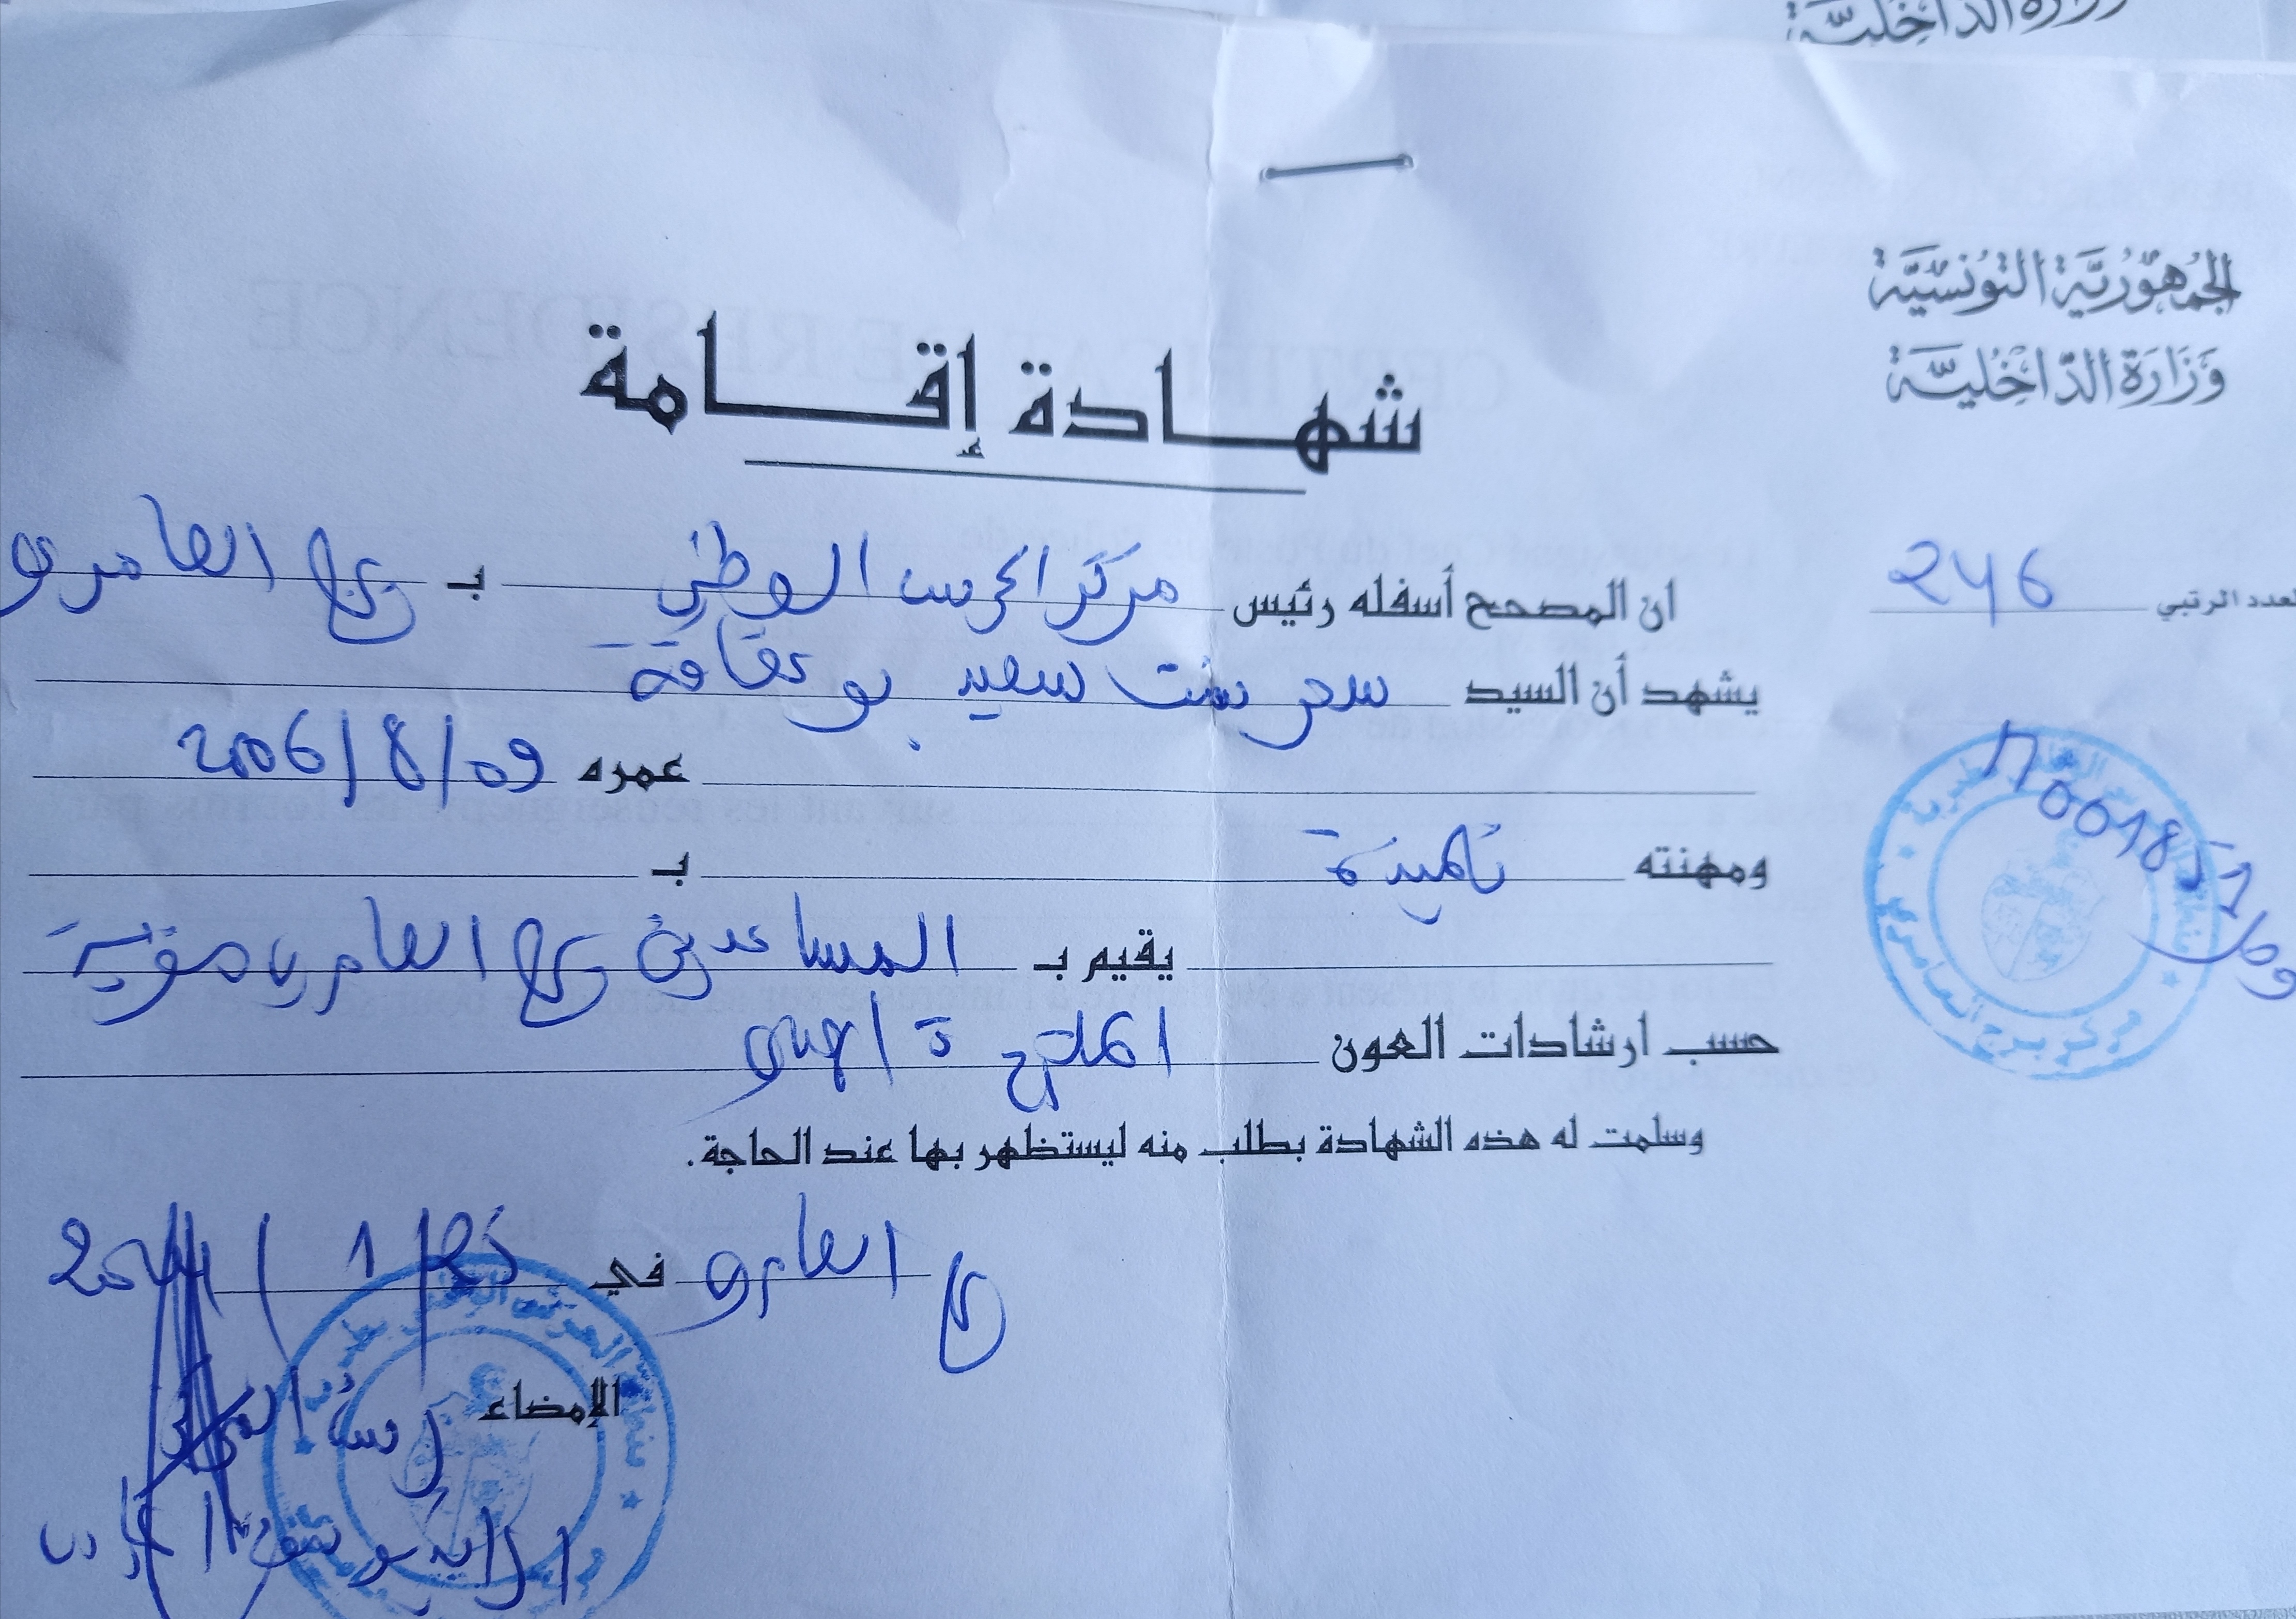 وزارة الداخلية
الجمهورية التونسية
وزارة الداخلية
شهادة إقامة
العدد الرتبي 246
ان المصحح أسفله رئيس مركز الحرس الوطني بـ برج العامري
يشهد أن السيد سحر بنت سعيد بوعقافة
عمره 09/8/2006
ومهنته تلميذة بـ
يقيم بـ المساعدين برج العامري منوبة
حسب ارشادات العون
وسلمت له هذه الشهادة بطلب منه ليستظهر بها عند الحاجة.
ب العامري في 25/1/2024
الإمضاء
رئيس المركز
مركز برج العامري